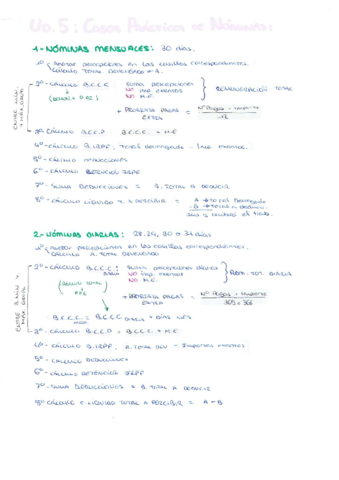 UD.5: Casos Prácticos de Nóminas:
1-NÓMINAS MENSUALES: 30 días.
1º Anotar percepciones en las casillas correspondientes.
Cálculo TOTAL DEVENGADO = A.
2º-CÁLCULO B.C.C.C.
Suma percepciones
NO imp. exentos
NO H.E.
REMUNERACIÓN TOTAL
+ PRORRATA PAGAS EXTRA
Nº Pagas × Importe
12
3º CÁLCULO B.C.C.P. B.C.C.C. + H.E.
4º-CÁLCULO B.IRPF; Total devengado - Imp. exentos.
5º-CÁLCULO DEDUCCIONES
6º-CÁLCULO RETENCIÓN IRPF
7º-SUMA DEDUCCIONES = B. TOTAL A DEDUCIR
8º-CÁLCULO LÍQUIDO T. A PERCIBIR =
A → Total Devengado
-B → Total a deducir
2-NÓMINAS DIARIAS: 28, 29, 30 o 31 días
1º Anotar percepciones en las casillas correspondientes.
CÁLCULO A. TOTAL DEVENGADO
2º-CÁLCULO B.C.C.C. DIARIA
Suma percepciones
NO imp. exentos
NO H.E.
REM. TOT. DIARIA
+ PRORRATA PAGAS EXTRA
Nº Pagas × Importe
365 ó 366
B.C.C.C. = B.C.C.C. DIARIA × DÍAS MES
3º-CÁLCULO B.C.C.P = B.C.C.C. + H.E.
4º-CÁLCULO B.IRPF; A.TOTAL DEV - Importes exentos
5º-CÁLCULO DEDUCCIONES
6º-CÁLCULO RETENCIÓN IRPF
7º-SUMA DEDUCCIONES = B. TOTAL A DEDUCIR
8º CÁLCULO LÍQUIDO TOTAL A PERCIBIR = A - B